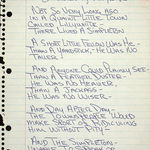 Not So Very Long Ago
In a Quaint Little Town
Called Lillyville -
There Lived A Simpleton
A Short Little Fellow Was He -
Than A Yardstick, He Was No
Taller!
And Anyone Could Plainly See -
Than A Feather Duster -
He Was No Heavier,
Than A Jackass -
He Was No Wiser -
And Day After Day -
The Townspeople Would
Make Sport of Ridiculing
Him Without Pity -
And The Simpleton -